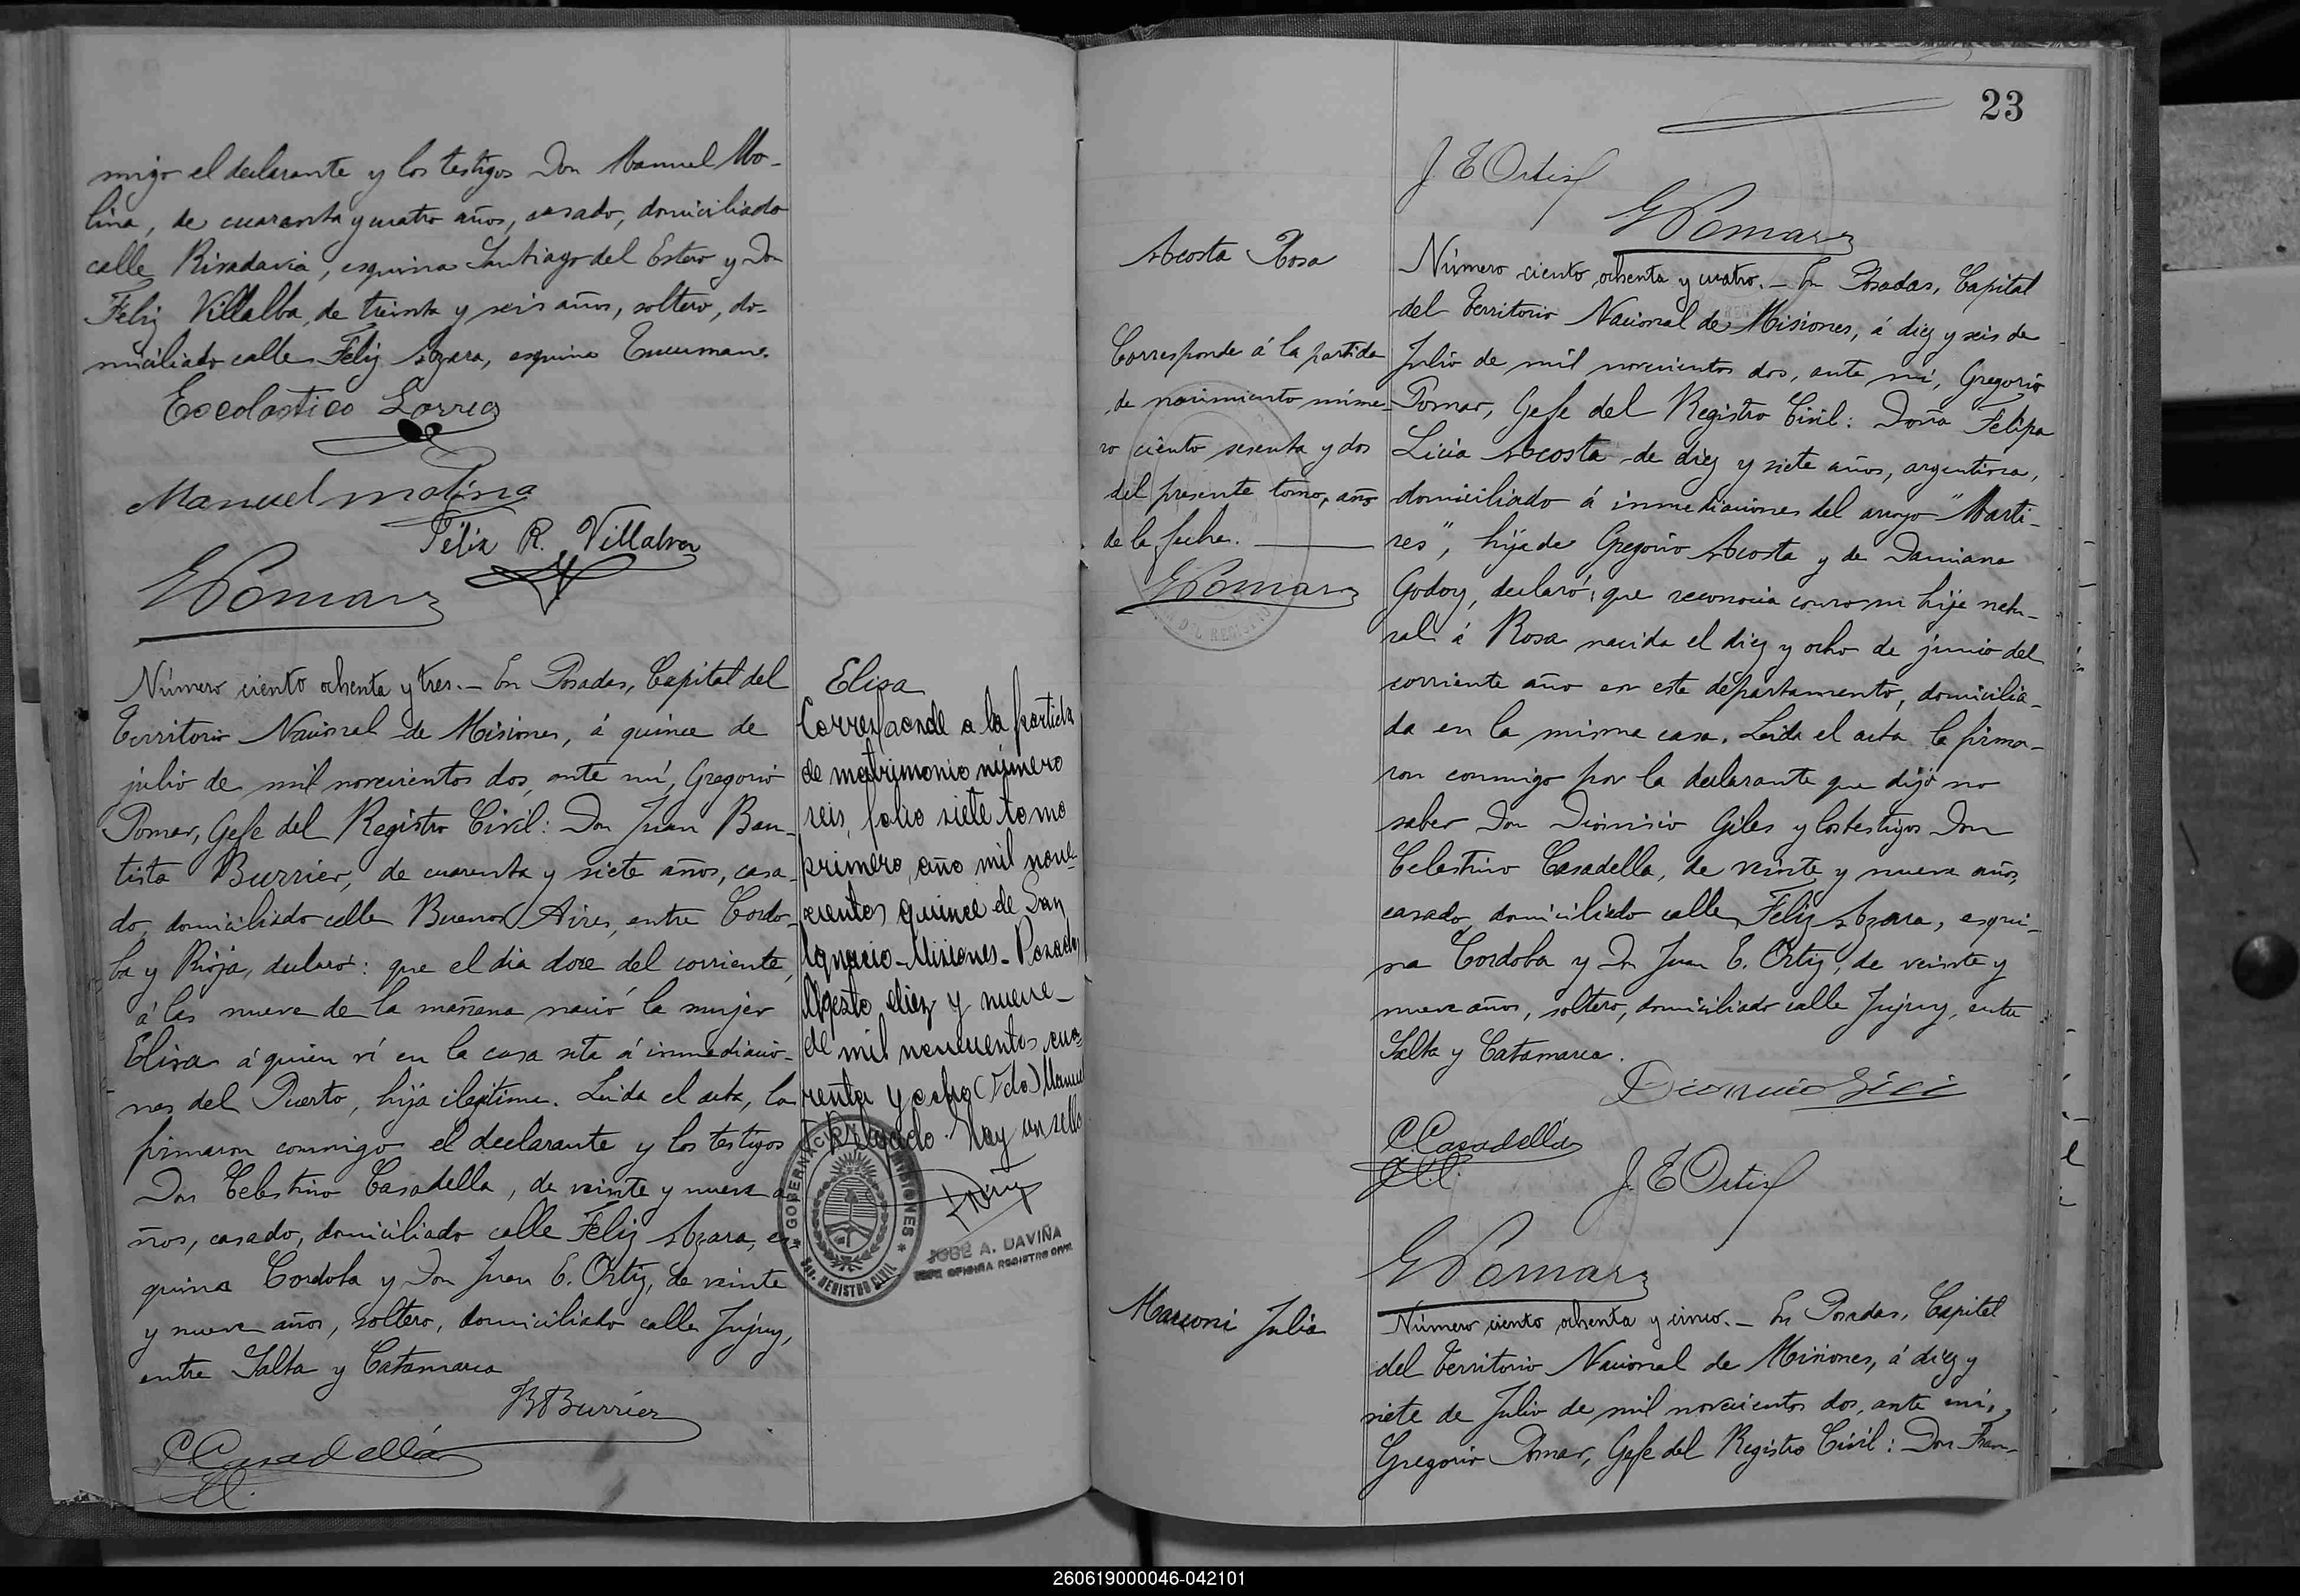 migo el declarante y los testigos Don Manuel Mo-
lina, de cuarenta y cuatro años, casado, domiciliado
calle Rivadavia, esquina Santiago del Estero y Don
Feliz Villalba, de treinta y seis años, soltero, do-
miciliado calle Feliz Azara, esquina Tucuman.
Escolastico Correa
Manuel Molina
Félix R. Villalva
GPomar
Número ciento ochenta y tres.- En Posadas, Capital del
Territorio Nacional de Misiones, á quince de
julio de mil novecientos dos, ante mí, Gregorio
Pomar, Gefe del Registro Civil: Don Juan Bau-
tista Burrier, de cuarenta y siete años, casa-
do, domiciliado calle Buenos Aires, entre Cordo-
ba y Rioja, declaró: que el dia doce del corriente,
á las nueve de la mañana nació la mujer
Elisa á quien ví en la casa sita á inmediacio-
nes del Puerto, hija ilegitima. Leida el acta, la
firmaron conmigo el declarante y los testigos
Don Celestino Casadella, de veinte y nueve a-
ños, casado, domiciliado calle Feliz Azara, es-
quina Cordoba y Don Juan E. Ortiz, de veinte
y nueve años, soltero, domiciliado calle Jujuy,
entre Salta y Catamarca
BtBurrier
C.Casadella
Elisa
Corresponde a la partida
de matrimonio número
seis, folio siete tomo
primero, año mil nove-
cientos quince de San
Ignacio-Misiones-Posadas
Agosto diez y nueve-
de mil novecientos cua-
renta y ocho (Fdo) Manuel
Hay un sello
GOBERNACION MISIONES
REGISTRO CIVIL
JOSÉ A. DAVIÑA
JEFE OFICINA REGISTRO CIVIL
23
J. E Ortiz
GPomar
Acosta Rosa
Corresponde á la partida
de nacimiento núme-
ro ciento sesenta y dos
del presente tomo, año
de la fecha.
GPomar
DEL REGISTRO
Número ciento ochenta y cuatro.- En Posadas, Capital
del Territorio Nacional de Misiones, á diez y seis de
Julio de mil novecientos dos, ante mí, Gregorio
Pomar, Gefe del Registro Civil: Doña Felipa
Licia Acosta de diez y siete años, argentina,
domiciliado á inmediaciones del arroyo "Marti-
res", hija de Gregorio Acosta y de Damiana
Godoy, declaró: que reconocia como su hija natu-
ral á Rosa nacida el diez y ocho de junio del
corriente año en este departamento, domicilia-
da en la misma casa. Leida el acta la firma-
ron conmigo por la declarante que dijo no
saber Don Dionisio Giles y los testigos Don
Celestino Casadella, de veinte y nueve años,
casado, domiciliado calle Feliz Azara, esqui-
na Cordoba y Dn Juan E. Ortiz, de veinte y
nueve años, soltero, domiciliado calle Jujuy, entre
Salta y Catamarca.
C.Casadella
J. E Ortiz
GPomar
Marconi Julia
Número ciento ochenta y cinco.- En Posadas, Capital
del Territorio Nacional de Misiones, á diez y
siete de Julio de mil novecientos dos, ante mí,
Gregorio Pomar, Gefe del Registro Civil: Don Fran-
260619000046-042101